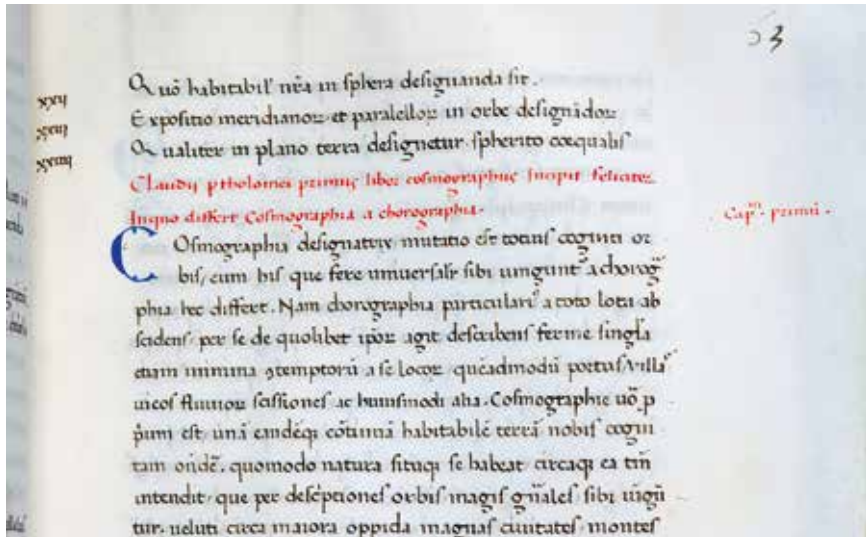 3
xxij Quo habitabil' nr̄a in sphera designanda sit.
xxiij Expositio meridianoꝝ et paralelloꝝ in orbe designādoꝝ
xxiiij Qualiter in plano terra designetur spherito coequalis
Claudij ptholomei primus liber cosmographie Incipit feliciter
In quo differt Cosmographia a chorographia. Capᵐ. primū.
COsmographia designatrix imitatio est totius cogniti or
bis, cum his que fere uniuersalr̄ sibi iungunt̄ a chorog̃
phia hec differt. Nam chorographia particularis a toto loca ab
scidens per se de quolibet ip̄oꝝ agit describens ferme singl̄a
etiam minima ꝯtemptorū a se locoꝝ queādmodū portus uillas
uicos fluuioꝝ scissiones ac huiusmodi alia. Cosmographie uō p
p̄um est unā eandēq; cōtinuā habitabilē terrā nobis cogni
tam ondē. quomodo natura situq; se habeat circaq; ea tm̄
intendit que per desc̄ptiones orbis magis gn̄ales sibi iūgū
tur. ueluti circa maiora oppida magnas ciuitates montes